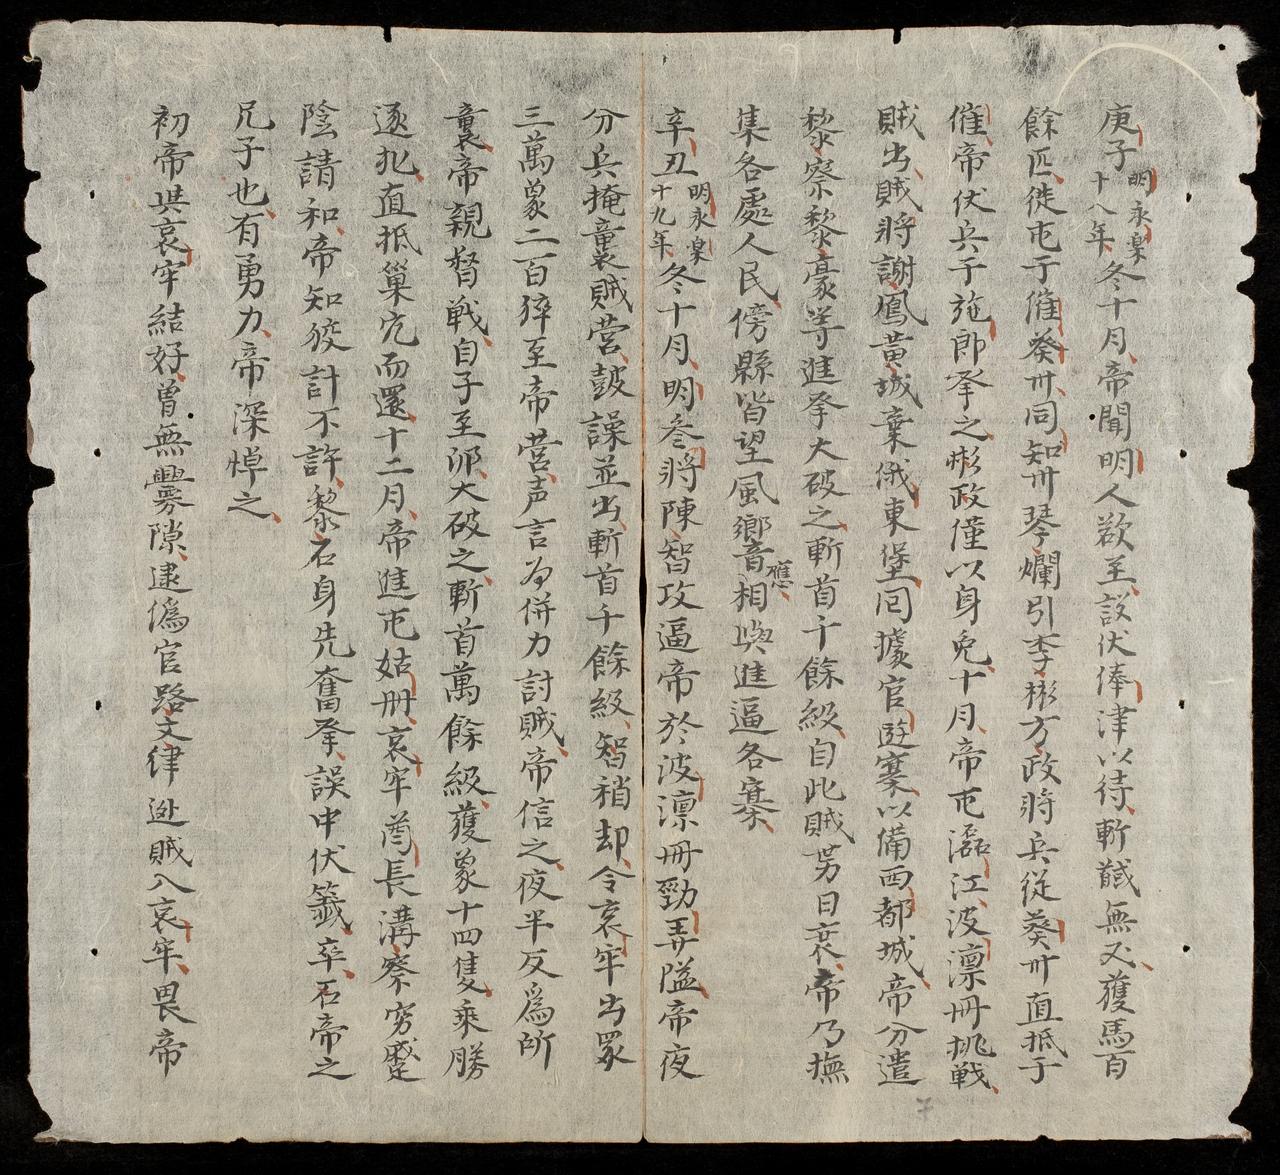 庚子明永樂十八年冬十月帝聞明人欲至設伏俸津以待斬馘無数獲馬百
餘匹徙屯于㒋葵冊同知州琴爛引李彬方政將兵従葵州直抵于
㒋帝伏兵于施郎挙之彬政僅以身免十月帝屯潞江波凛冊挑戦
賊出賊將謝鳳黃城棄俄東堡囘據官遊寨以備西都城帝分遣
黎察黎豪等進挙大破之斬首千餘級自此賊势日衰帝乃撫
集各處人民傍縣皆望風響應相與進逼各寨
辛丑明永楽十九年冬十月明叅將陳智攻逼帝於波凛冊勁弄隘帝夜
分兵掩襲賊营鼓譟並出斬首千餘級智稍却令哀牢出眾
三萬象二百猝至帝营声言为併力討賊帝信之夜半反爲所
襲帝親督戦自子至卯大破之斬首萬餘級獲象十四隻乘勝
逐北直抵巢穴而還十二月帝進屯姑冊哀牢酋長滿察窮蹙
陰請和帝知狡計不許黎石身先奮挙誤中伏籤卒石帝之
兄子也有勇力帝深悼之
初帝與哀牢結好曽無釁隙逮僞官路文律迯賊入哀牢畏帝